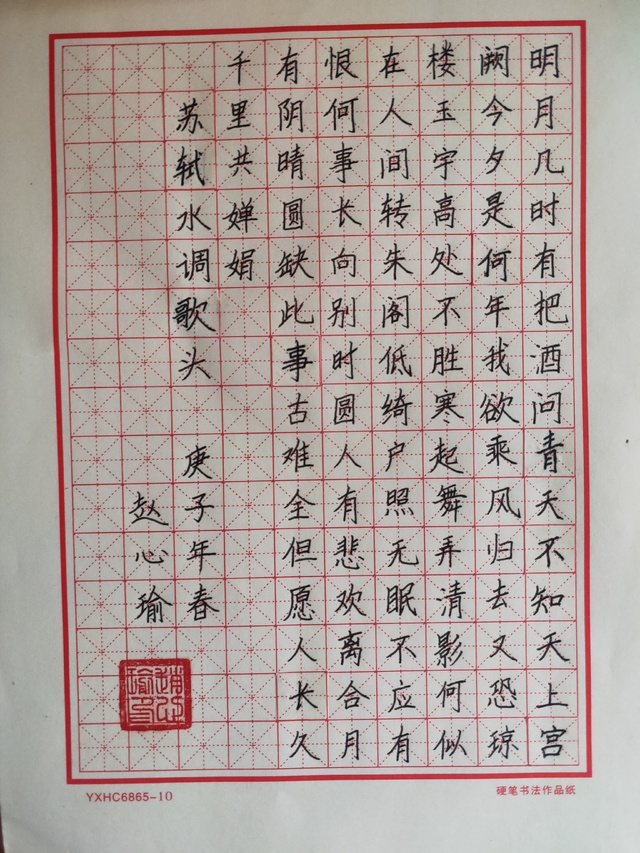 明月几时有把酒问青天不知天上宫
阙今夕是何年我欲乘风归去又恐琼
楼玉宇高处不胜寒起舞弄清影何似
在人间转朱阁低绮户照无眠不应有
恨何事长向别时圆人有悲欢离合月
有阴晴圆缺此事古难全但愿人长久
千里共婵娟
苏轼水调歌头 庚子年春
赵心瑜
YXHC6865-10
硬笔书法作品纸